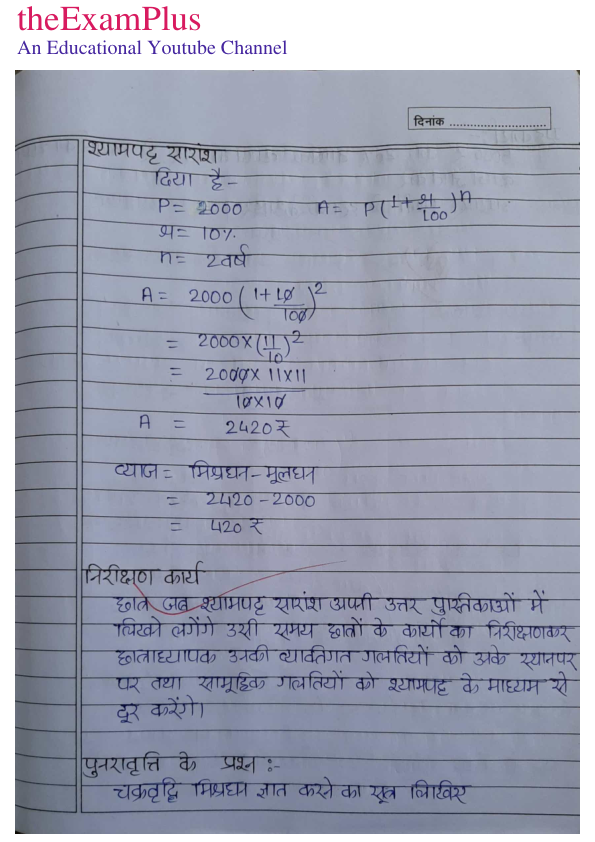 theExamPlus
An Educational Youtube Channel
दिनांक ............................
श्यामपट्ट सारांश
दिया है-
P = 2000 A = P(1+श्र/100)^n
श्र = 10%
n = 2वर्ष
A = 2000 (1+10/100)^2
= 2000×(11/10)^2
= 2000×11×11/10×10
A = 2420₹
व्याज = मिश्रधन-मूलधन
= 2420-2000
= 420₹
निरीक्षण कार्य
छात्र जब श्यामपट्ट सारांश अपनी उत्तर पुस्तिकाओं में
लिखने लगेंगे उसी समय छात्रों के कार्यो का निरीक्षणकर
छात्राध्यापक उनकी व्यक्तिगत गलतियों को उनके स्थानपर
पर तथा सामूहिक गलतियों को श्यामपट्ट के माध्यम से
दूर करेंगे।
पुनरावृत्ति के प्रश्न :-
चक्रवृद्धि मिश्रधन ज्ञात करने का सूत्र लिखिए